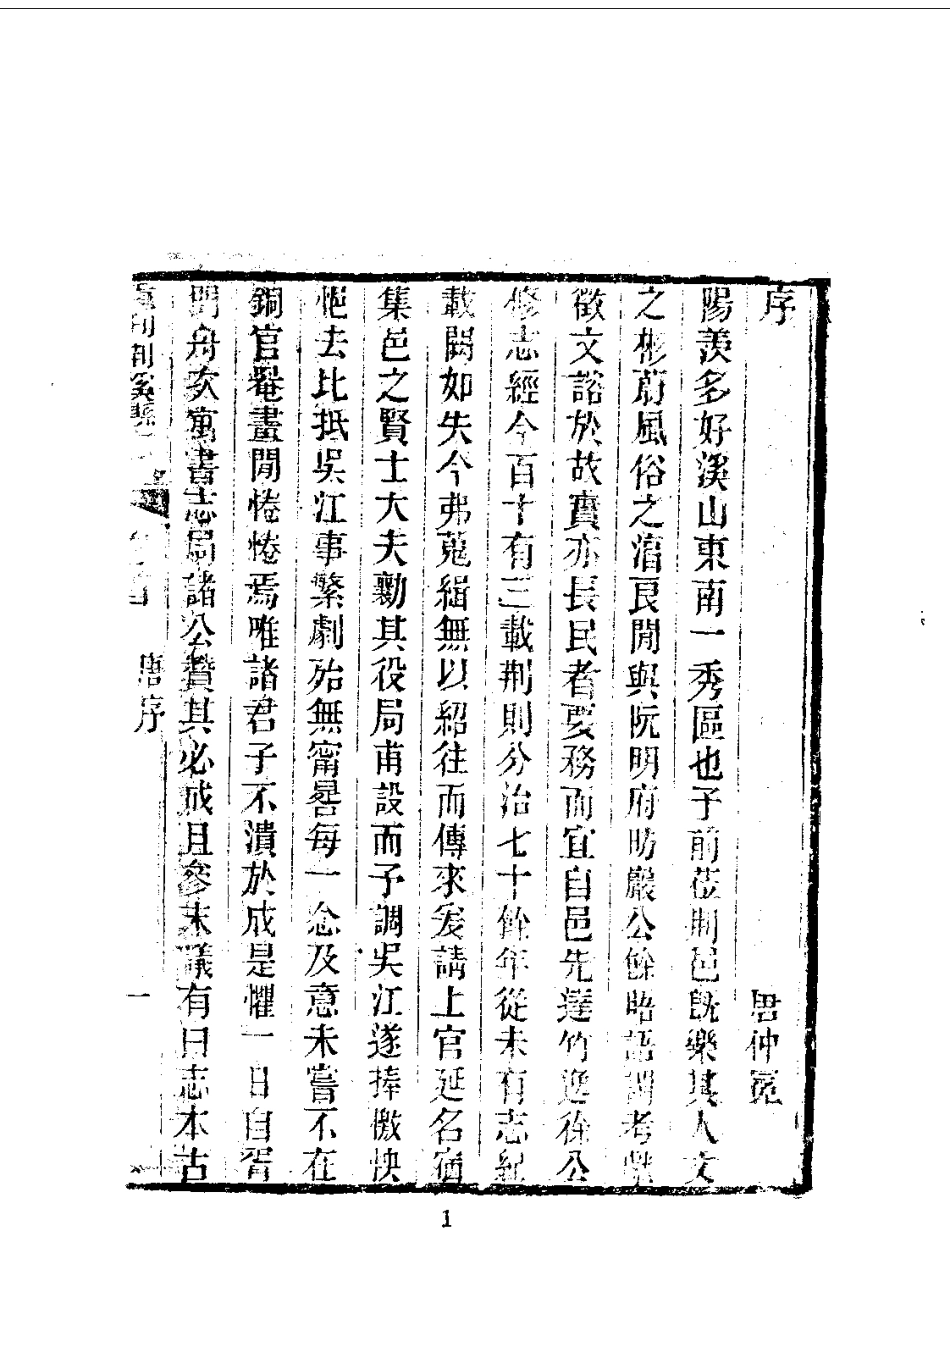 序
唐仲冕
陽羨多好溪山東南一秀區也予前莅荆邑旣樂其人文
之彬蔚風俗之湻良閒與阮明府昉巖公餘晤語謂考
徵文諮於故實亦長民者要務而宜自邑先達竹逸徐公
修志經今百十有三載荆則分治七十餘年從未有志紀
載闕如失今弗蒐緝無以紹往而傳來爰請上官延名宿
集邑之賢士大夫勷其役局甫設而予調吳江遂捧檄怏
悒去比抵吳江事繁劇殆無甯晷每一念及意未嘗不在
銅官罨畫閒惓惓焉唯諸君子不潰於成是懼一日自胥
門舟次寓書志局諸公贊其必成且參末議有曰志本古
重刊荆溪縣
唐序
一
1